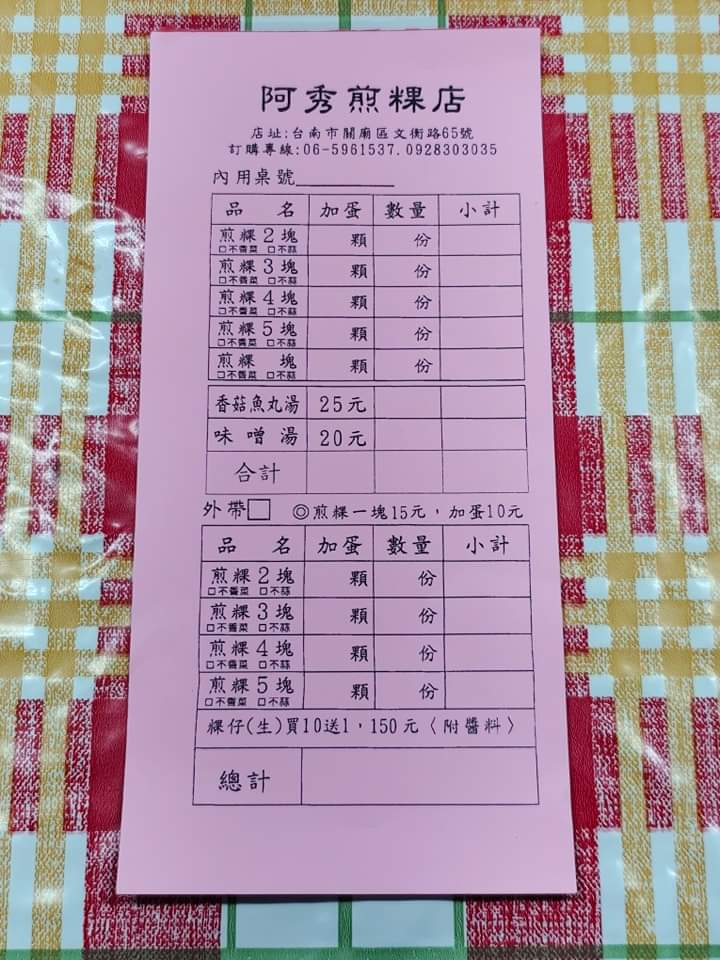 阿秀煎粿店
店址:台南市關廟區文衡路65號
訂購專線:06-5961537.0928303035
內用桌號
品 名 加蛋 數量 小計
煎粿2塊 顆 份
□不香菜 □不蒜
煎粿3塊 顆 份
□不香菜 □不蒜
煎粿4塊 顆 份
□不香菜 □不蒜
煎粿5塊 顆 份
□不香菜 □不蒜
煎粿 塊 顆 份
□不香菜 □不蒜
香菇魚丸湯 25元
味噌湯 20元
合計
外帶□ ◎煎粿一塊15元，加蛋10元
品 名 加蛋 數量 小計
煎粿2塊 顆 份
□不香菜 □不蒜
煎粿3塊 顆 份
□不香菜 □不蒜
煎粿4塊 顆 份
□不香菜 □不蒜
煎粿5塊 顆 份
□不香菜 □不蒜
粿仔(生)買10送1，150元〈附醬料〉
總計